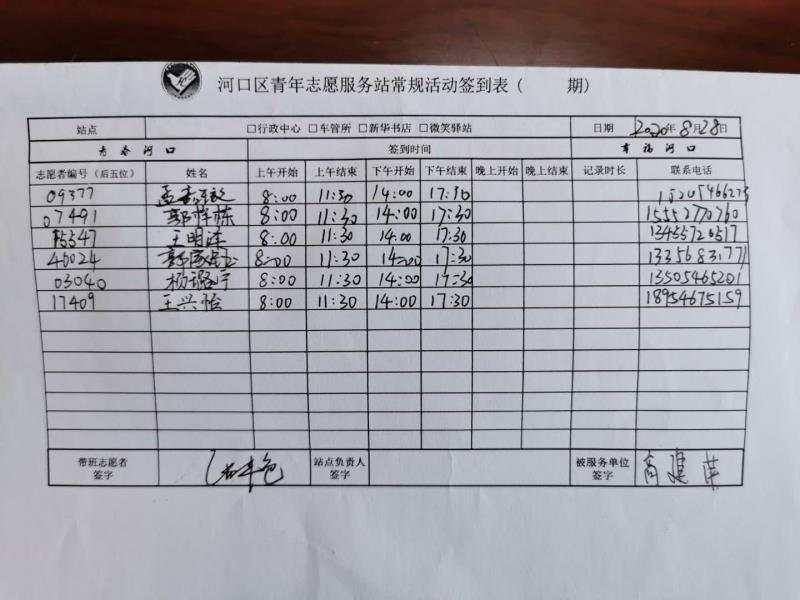 河口区青年志愿服务站常规活动签到表（ 期）
站点 □行政中心 □车管所 □新华书店 □微笑驿站 日期 2020年8月28日
青春河口 签到时间 幸福河口
志愿者编号（后五位） 姓名 上午开始 上午结束 下午开始 下午结束 晚上开始 晚上结束 记录时长 联系电话
09377 8:00 11:30 14:00 17:30
07491 郭梓栋 8:00 11:30 14:00 17:30 15552770760
15547 王明洋 8:00 11:30 14:00 17:30 13455720517
40024 8:00 11:30 14:00 17:30 13356831771
03040 杨璐宁 8:00 11:30 14:00 17:30 13505465201
17409 王兴怡 8:00 11:30 14:00 17:30 18954675159
带班志愿者签字 站点负责人签字 被服务单位签字